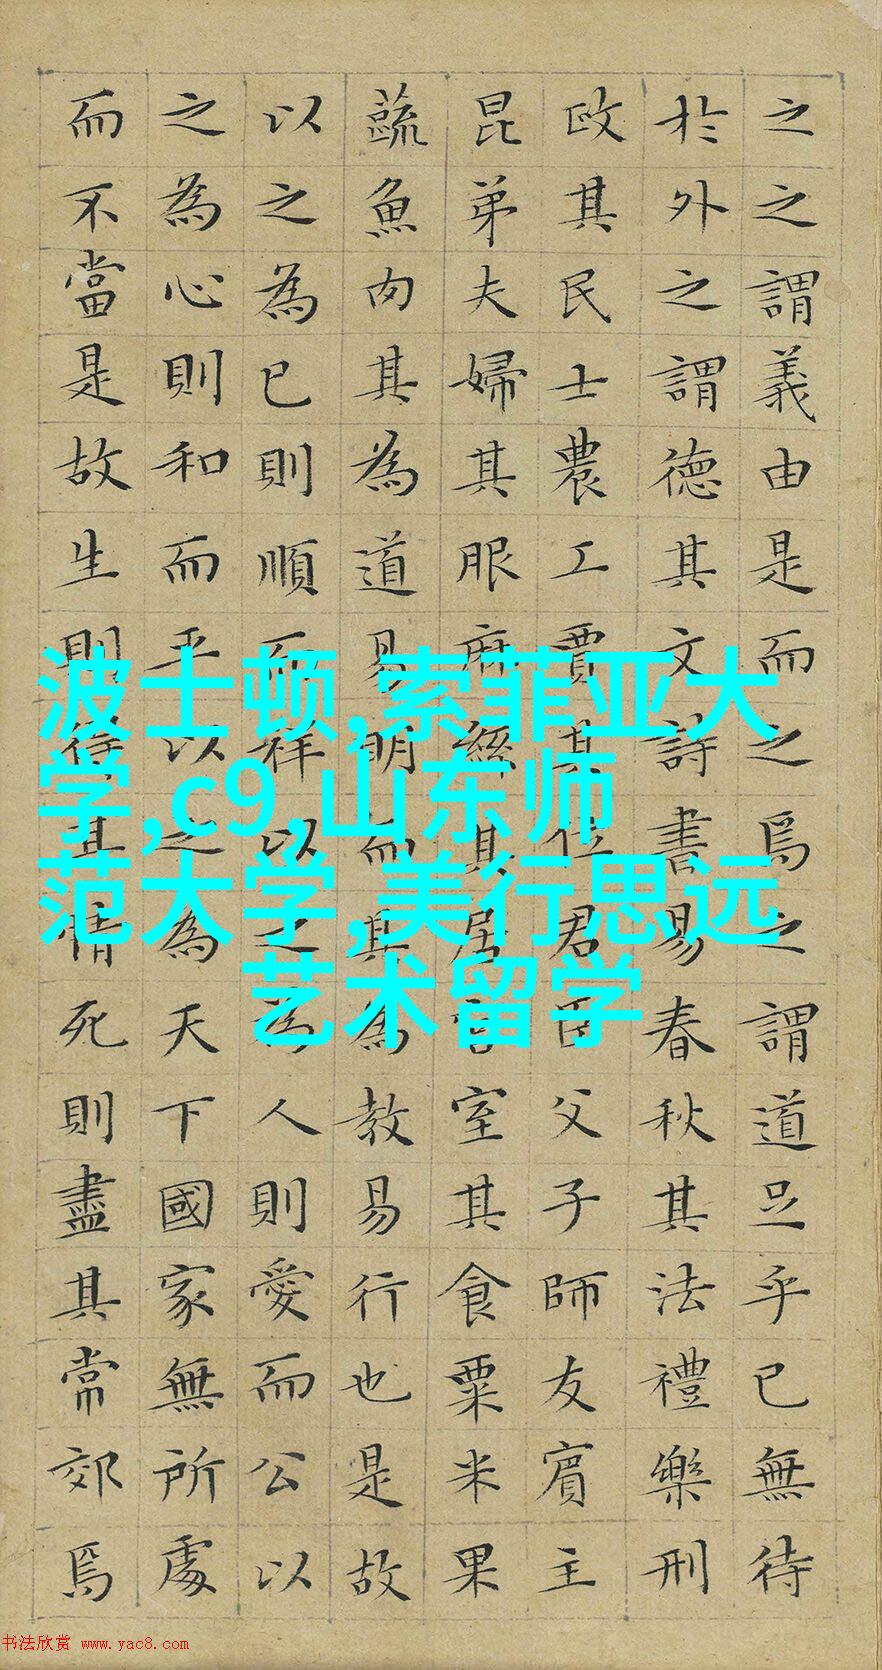 之之謂義由是而之焉之謂道足乎已無待
於外之謂德其文詩書易春秋其法禮樂刑
政其民士農工賈其位君臣父子師友賓主
昆弟夫婦其服麻絲其居宮室其食粟米果
蔬魚肉其為道易明而其為教易行也是故
以之為已則順而祥以之為人則愛而公以
之為心則和而平以之為天下國家無所處
而不當是故生則得其情死則盡其常郊焉
波士顿,索菲亚大
学,c9,山东师
范大学,美行思远
艺术留学
书法欣赏 www.yac8.com